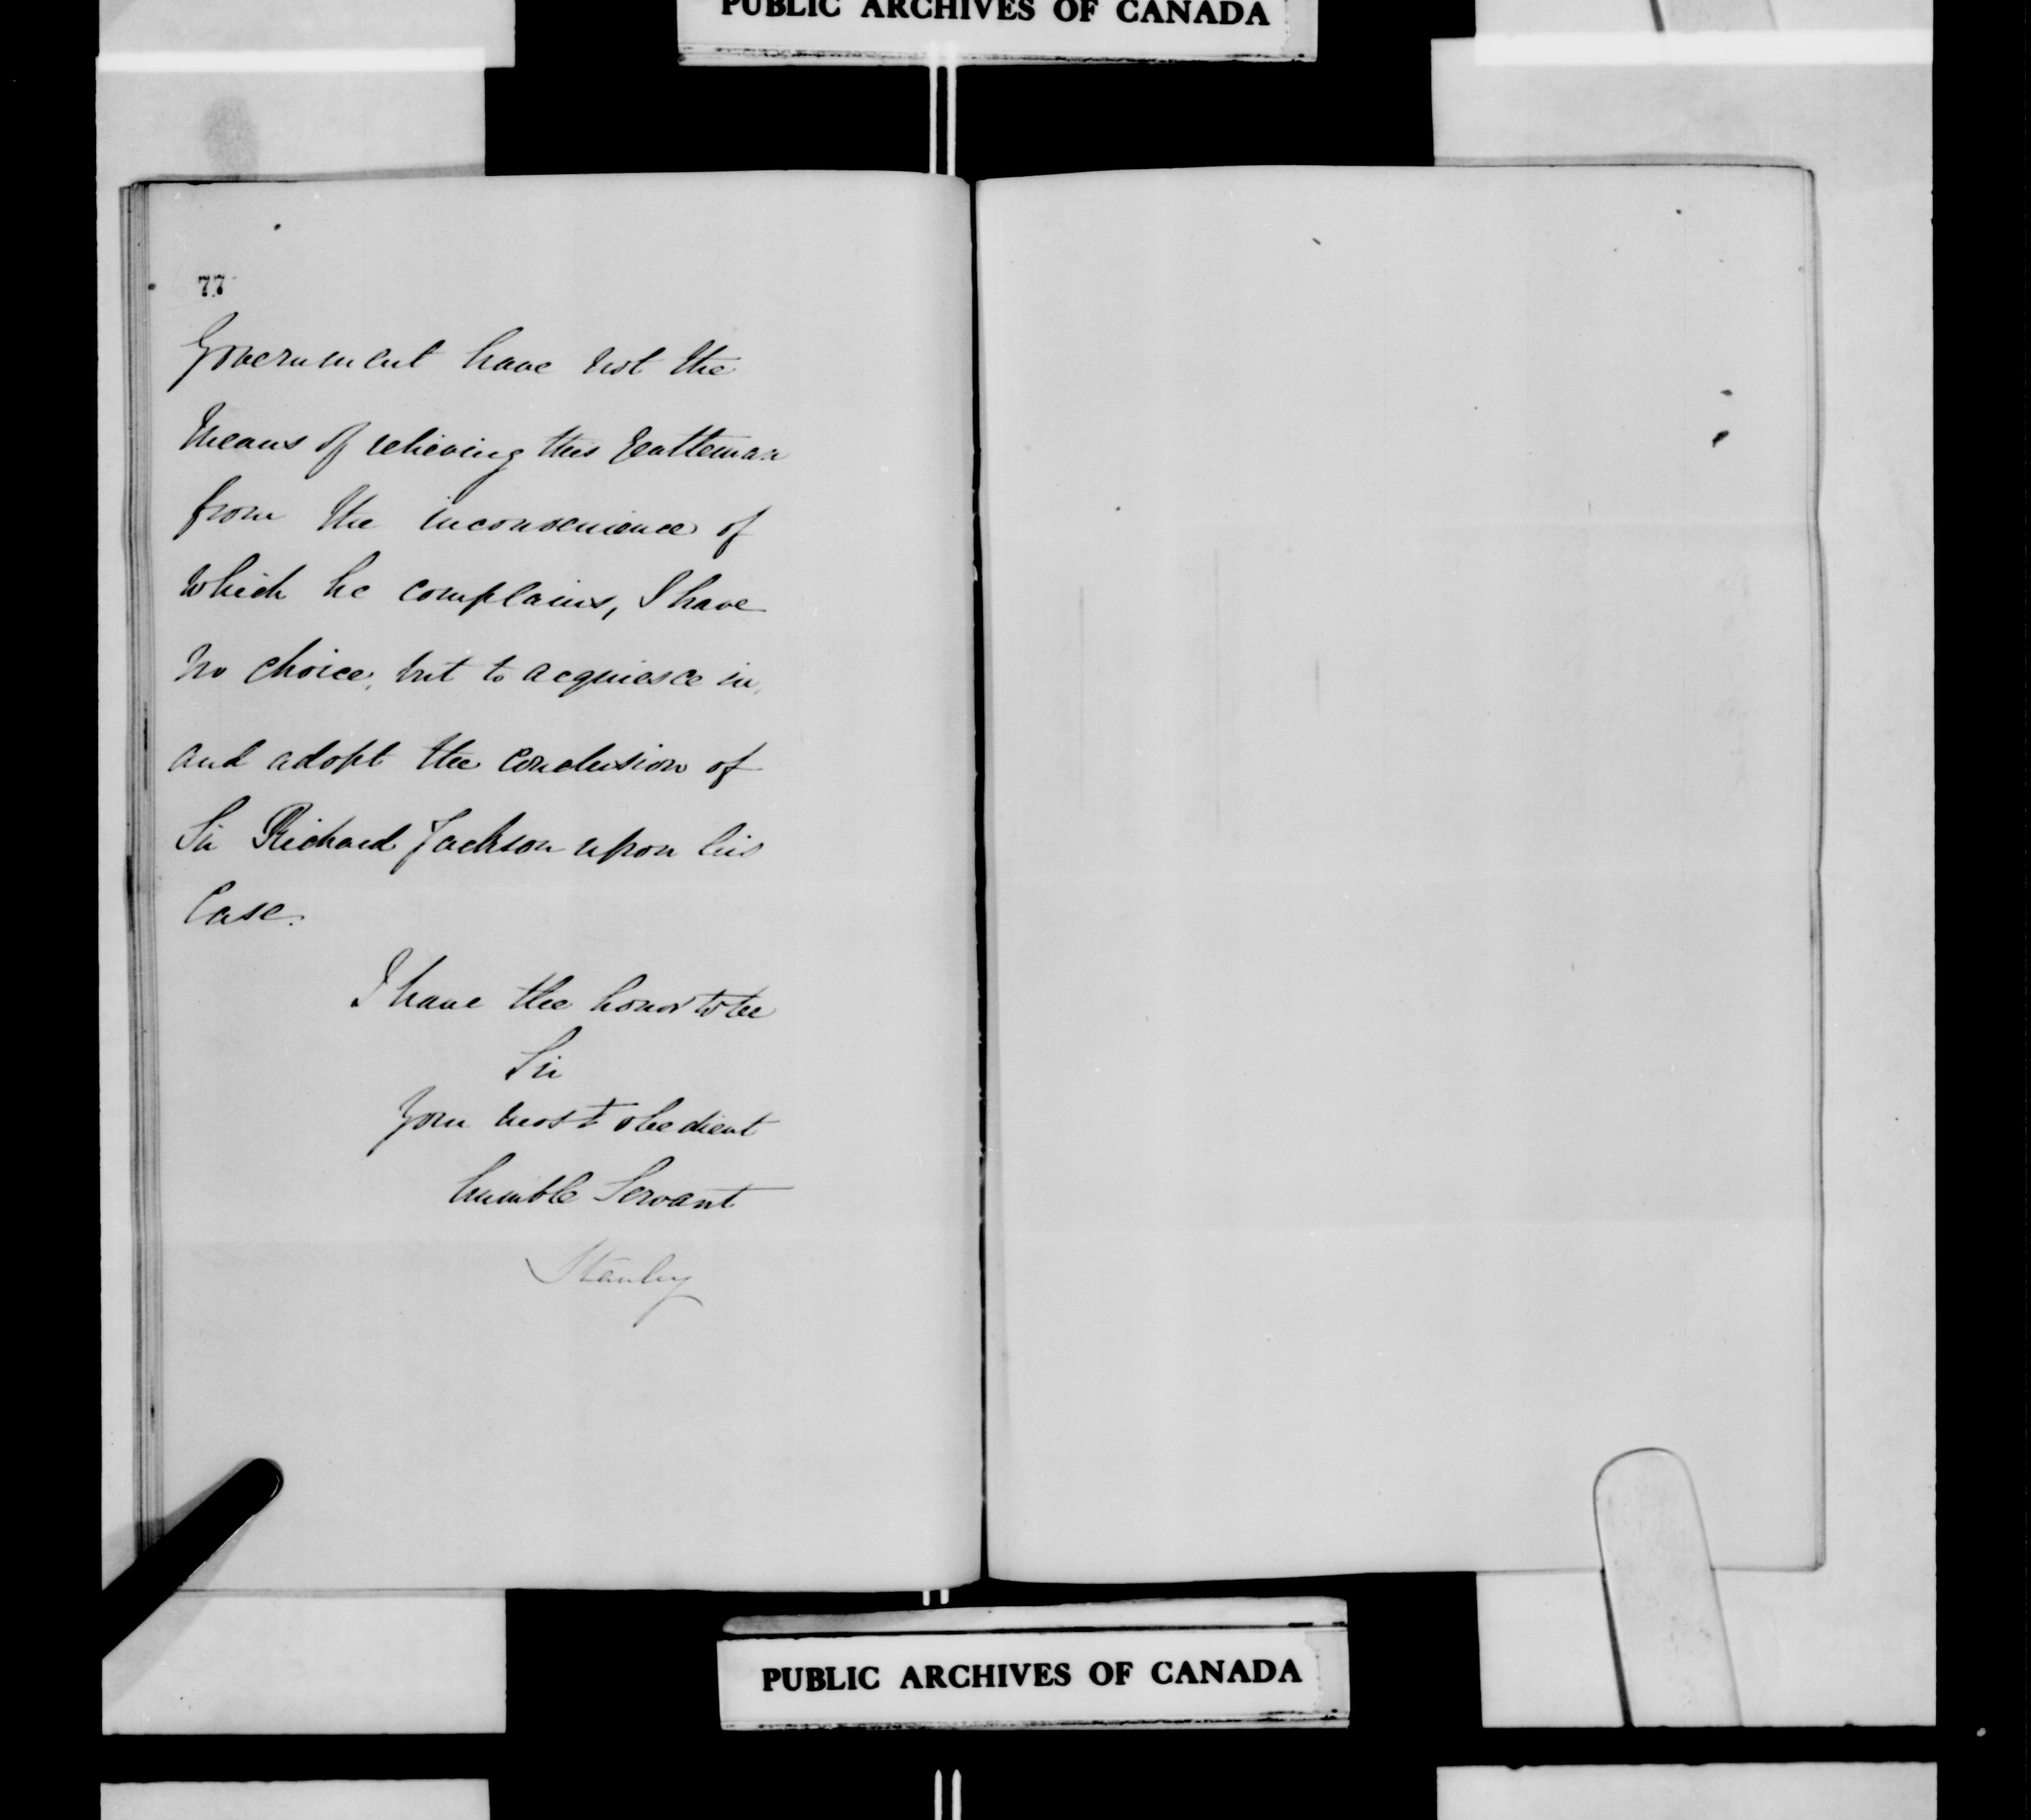 PUBLIC ARCHIVES OF CANADA
77
Government have not the
means of relieving this Gentleman
from the inconvenience of
which he complains, I have
no choice, but to acquiesce in,
and adopt the conclusion of
Sir Richard Jackson upon his
Case.
I have the honor to be
Sir
Your most obedient
humble Servant
Stanley
PUBLIC ARCHIVES OF CANADA